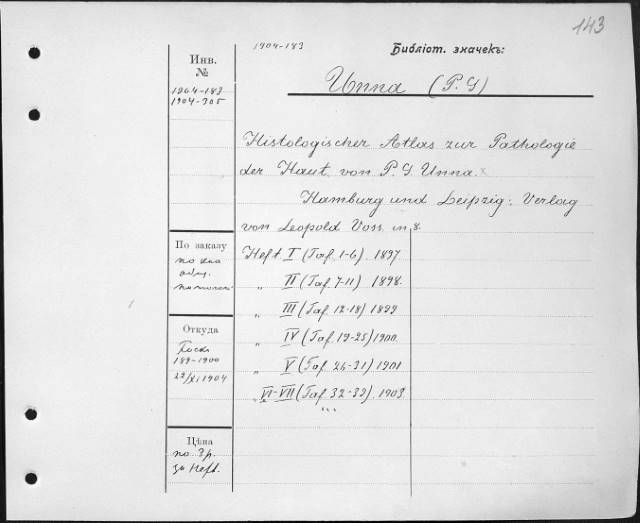 143
1904-183
Библіот. значекъ:
Инв.
№
1904-183
1904-305
Unna (P. G)
Histologischer Atlas zur Pathologie
der Haut von P. G. Unna.
Hamburg und Leipzig: Verlag
von Leopold Voss. in 8.
По заказу
Heft I (Taf. 1-6). 1897.
„ II (Taf. 7-11) 1898.
„ III (Taf. 12-18) 1899
Откуда
„ IV (Taf. 19-25) 1900.
189-1900
22/XI 1904
„ V (Taf. 26-31) 1901
„ VI-VII (Taf. 32-39). 1903.
Цѣна
по 3 р.
за Heft.